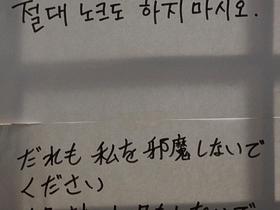 절대 노크도 하지 마시오.
だれも 私を 邪魔しないで
ください